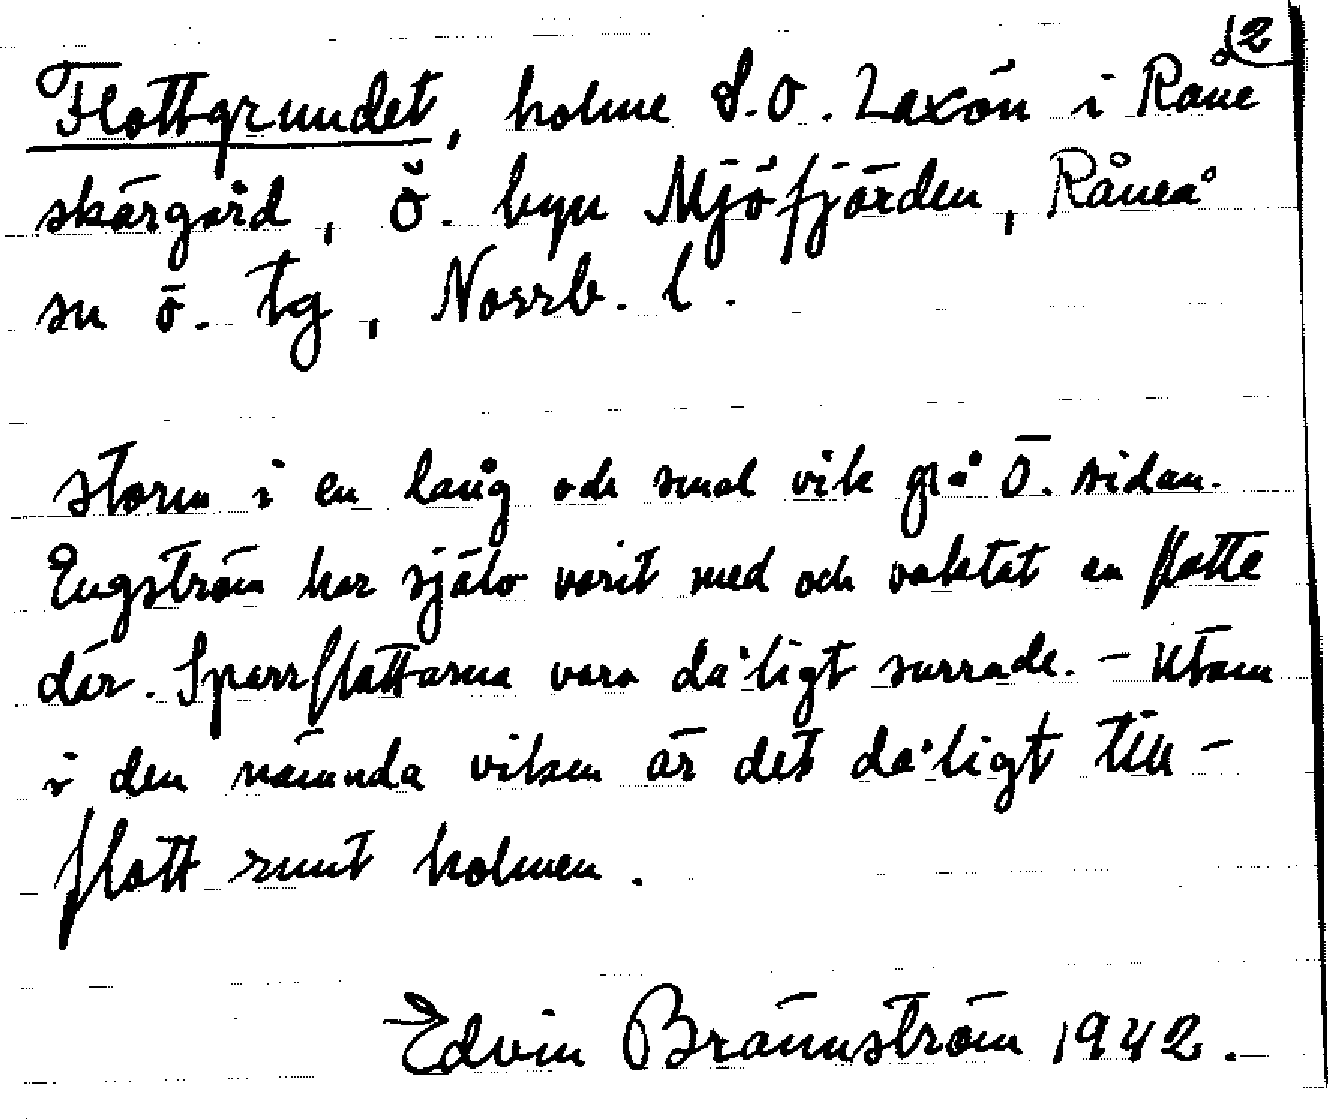 12
Flottgrundet, holme S.O. Laxön i Råne
skärgård, ö. byn Mjöfjärden, Råneå
sn ö. tg, Norrb. l.
storm i en lång och smal vik på Ö. sidan.
Engström har själv varit med och vaktat en flotte
där. Sparrflottarna voro dåligt surrade. - Utom
i den nämnda viken är det dåligt till-
flott runt holmen.
Edvin Brännström 1942.